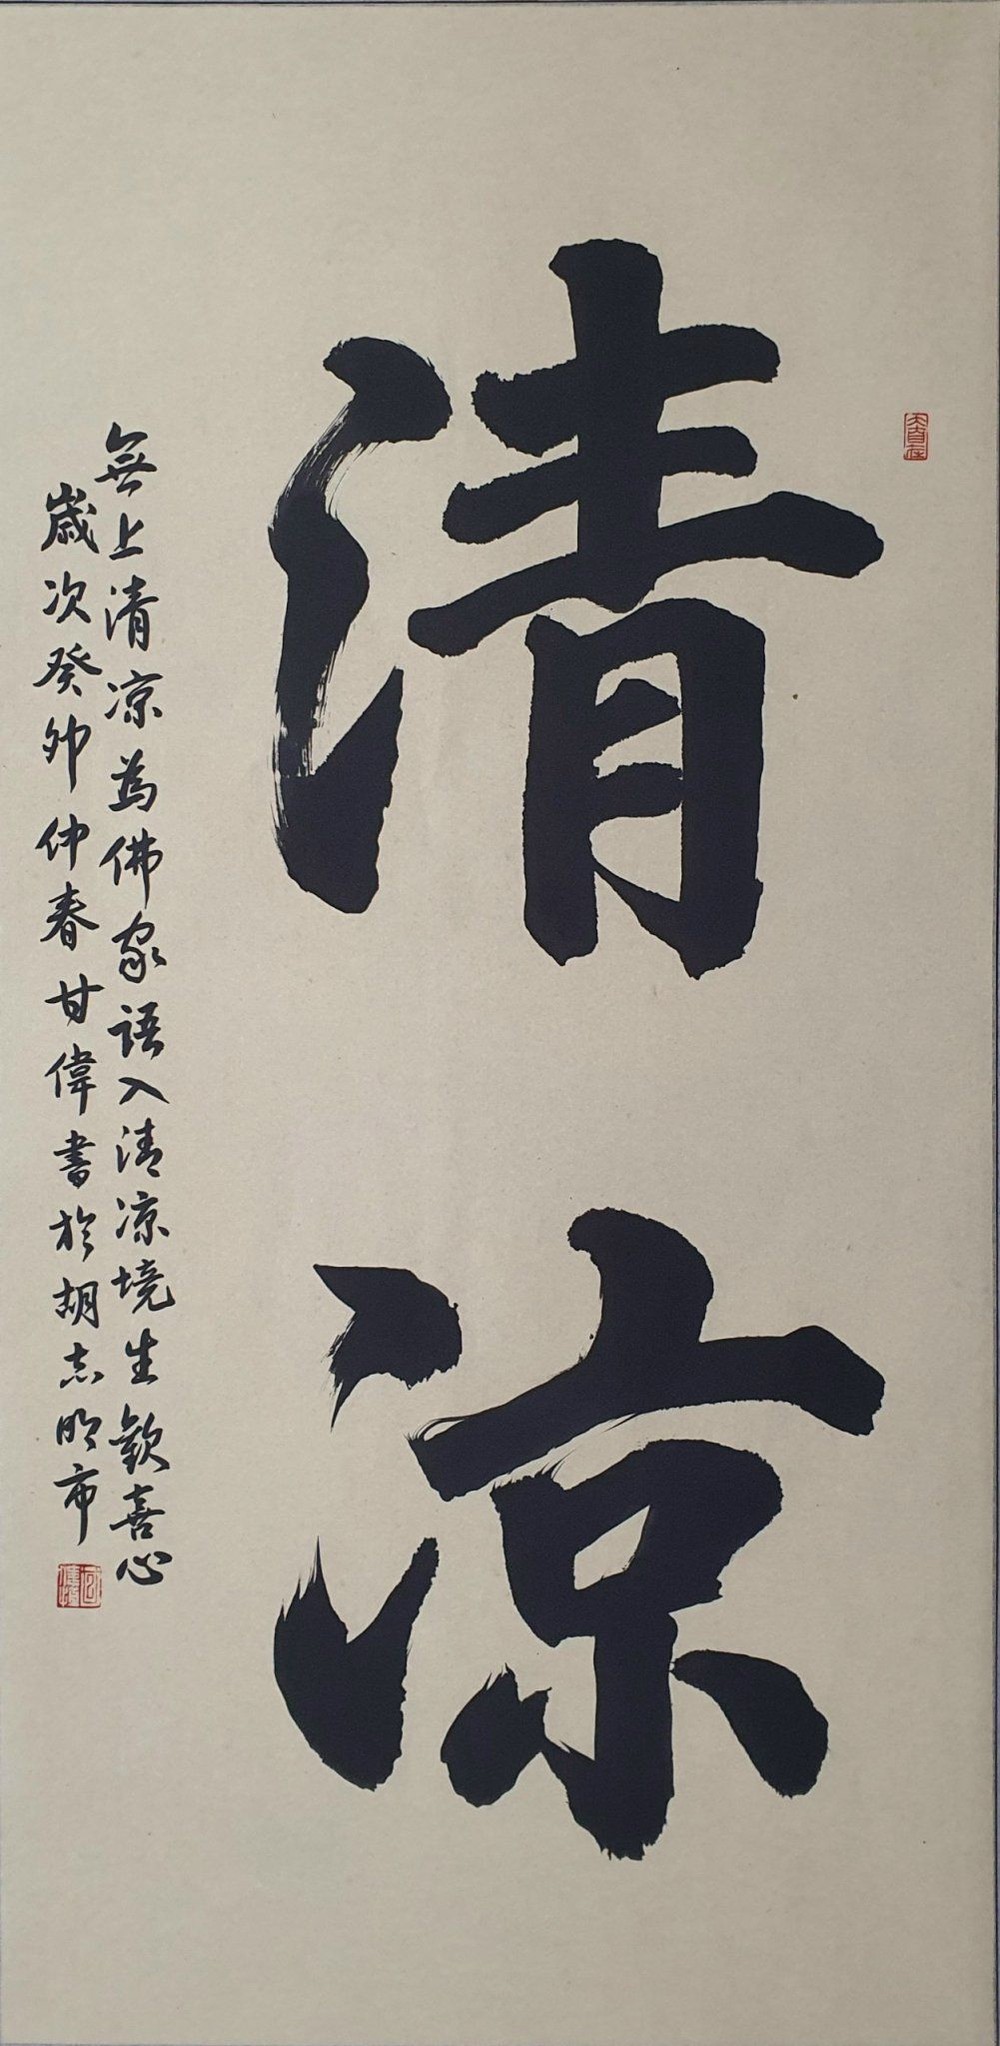 清凉
無上清凉為佛家語入清凉境生歡喜心
歲次癸卯仲春甘偉書於胡志明市
大自在